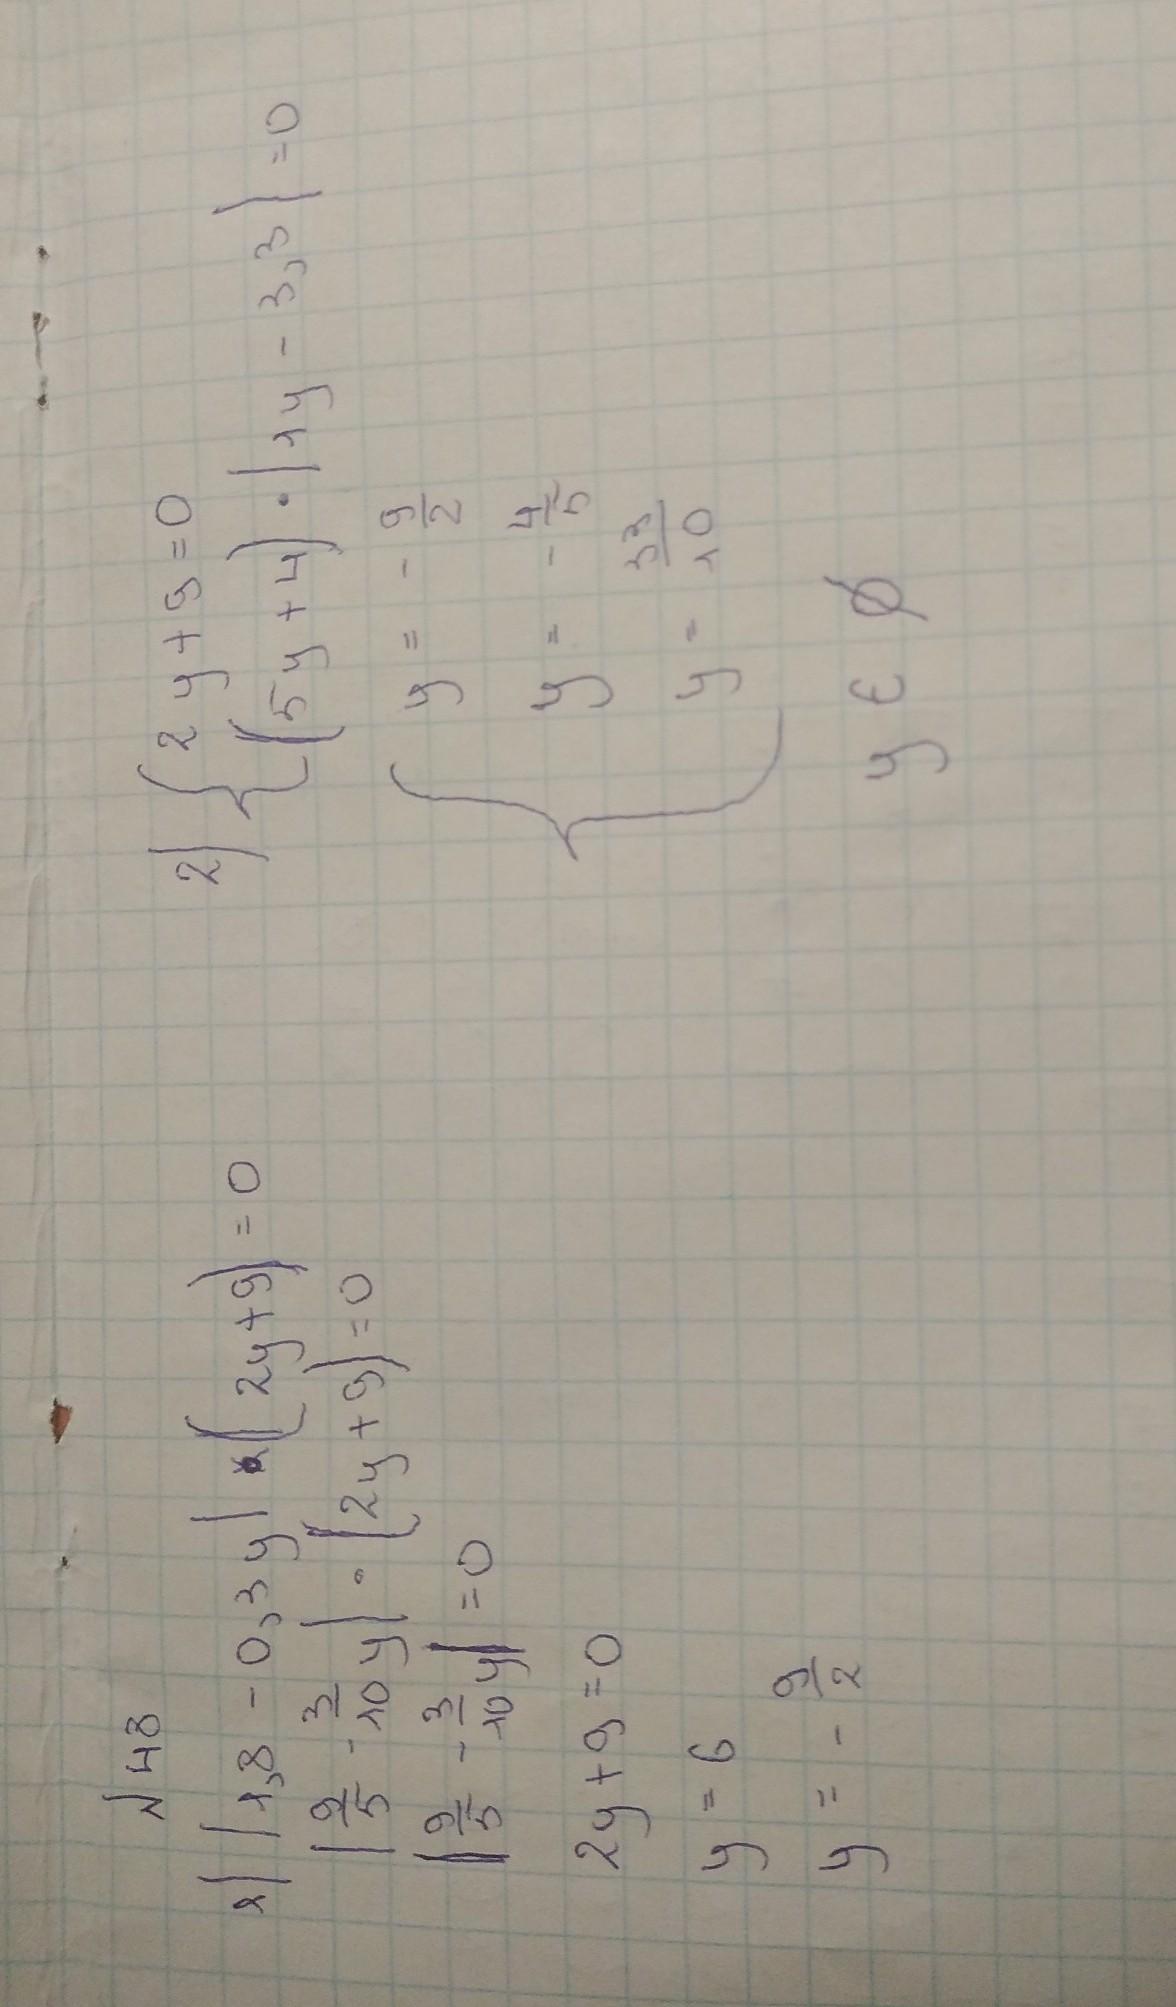 N 48
1) |1,8 - 0,3y| · (2y+9) = 0
|9/5 - 3/10 y| · (2y+9) = 0
|9/5 - 3/10 y| = 0
2y+9=0
y = 6
y = - 9/2
2) { 2y+9=0
(5y+4) · |1y - 3,3| = 0
{ y = - 9/2
y = - 4/5
y = 33/10
y ∈ ∅